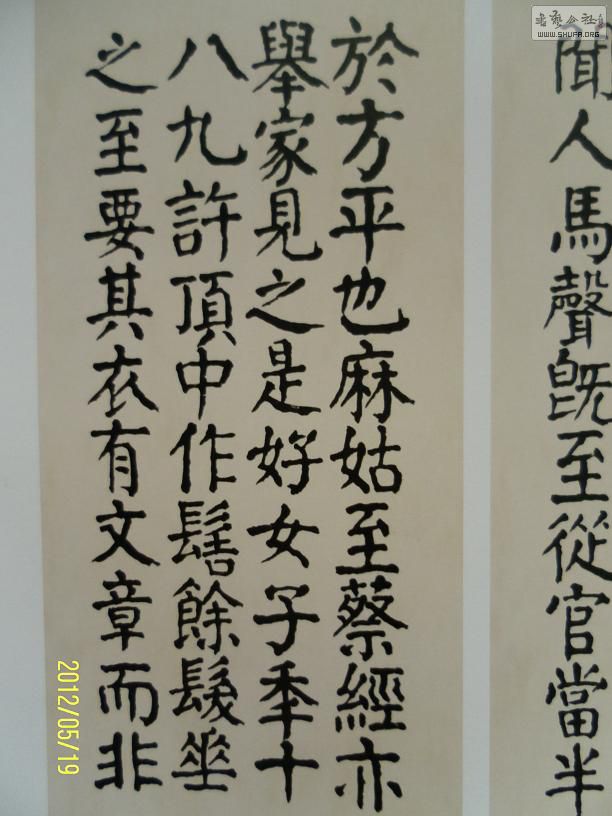 聞人馬聲既至從官當半
於方平也麻姑至蔡經亦
舉家見之是好女子年十
八九許頂中作髻餘髮垂
之至要其衣有文章而非
2012/05/19
WWW.SHUFA.ORG